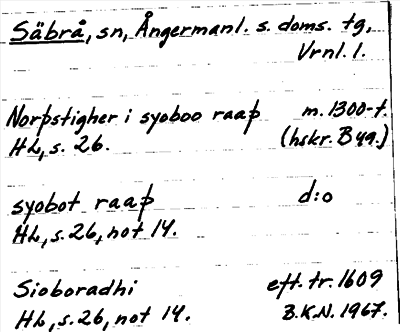 Säbrå, sn, Ångermanl. s. doms. tg,
Vrnl. l.
Norþstigher i syoboo raaþ m. 1300-t.
HL, s. 26. (hskr. B ya.)
syobot raaþ d:o
HL, s. 26, not 14.
Sioboradhi eft. tr. 1609
HL, s. 26, not 14. B.K.N. 1967.